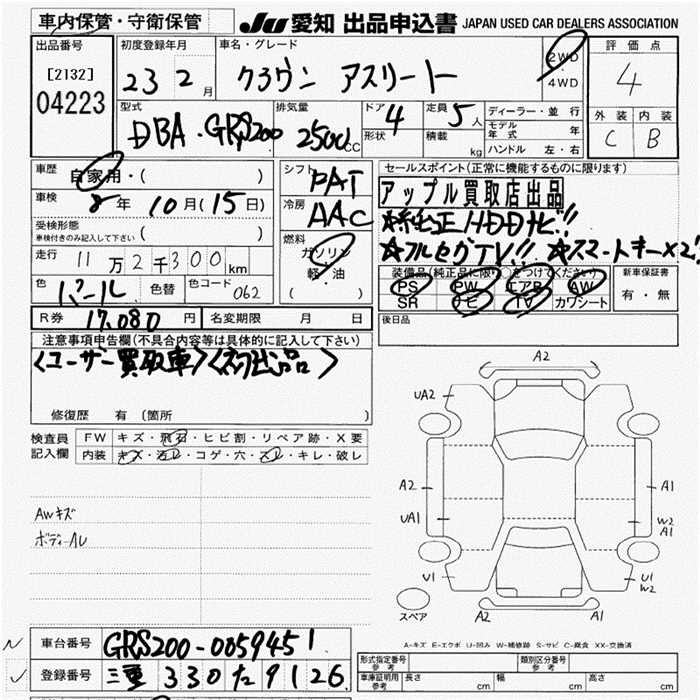 車内保管・守衛保管
JU 愛知 出品申込書 JAPAN USED CAR DEALERS ASSOCIATION
出品番号 初度登録年月 車名・グレード 2WD 評価点
[2132] 23 2月 クラウン アスリート ・ 4
04223 4WD
型式 排気量 ドア 4 定員 5人 ディーラー・並行 外装 内装
DBA・GRS200 2500cc 形状 積載 kg モデル年式 年 C B
ハンドル 左・右
車歴 自家用・( ) シフト PAT セールスポイント(正常に機能するものに限ります)
車検 8年10月(15日) 冷房 AAC アップル買取店出品
受検形態 ( ) ☆純正HDDナビ!!
車検付きのみ記入して下さい 燃料 ☆フルセグTV!! ☆スマートキー×2!
走行 11万2千300km ガソリン
軽・油 装備品(純正品に限り○をつけてください) 新車保証書
色 パール 色替 色コード 062 ( ) PS PW エアB AW 有・無
SR ナビ TV カワシート
R券 17,080円 名変期限 月 日 後日品
注意事項申告欄(不具合内容等は具体的に記入して下さい)
<ユーザー買取車><初出品>
修復歴 有(箇所 )
検査員 FW キズ・飛石・ヒビ割・リペア跡・X要
記入欄 内装 キズ・汚レ・コゲ・穴・スレ・キレ・破レ
AWキズ
ボディーAU
A2
UA2
A2 A1
UA1 W2
A1
U1 U1
W2
A2 A1
スペア
A-キズ E-エクボ U-凹み W-補修跡 S-サビ C-腐食 XX-交換済
車台番号 GRS200-0059451
登録番号 三重 330 た 9126
形式指定番号 参考 類別区分番号 参考
車庫証明用 参考 長さ cm 幅 cm 高さ cm